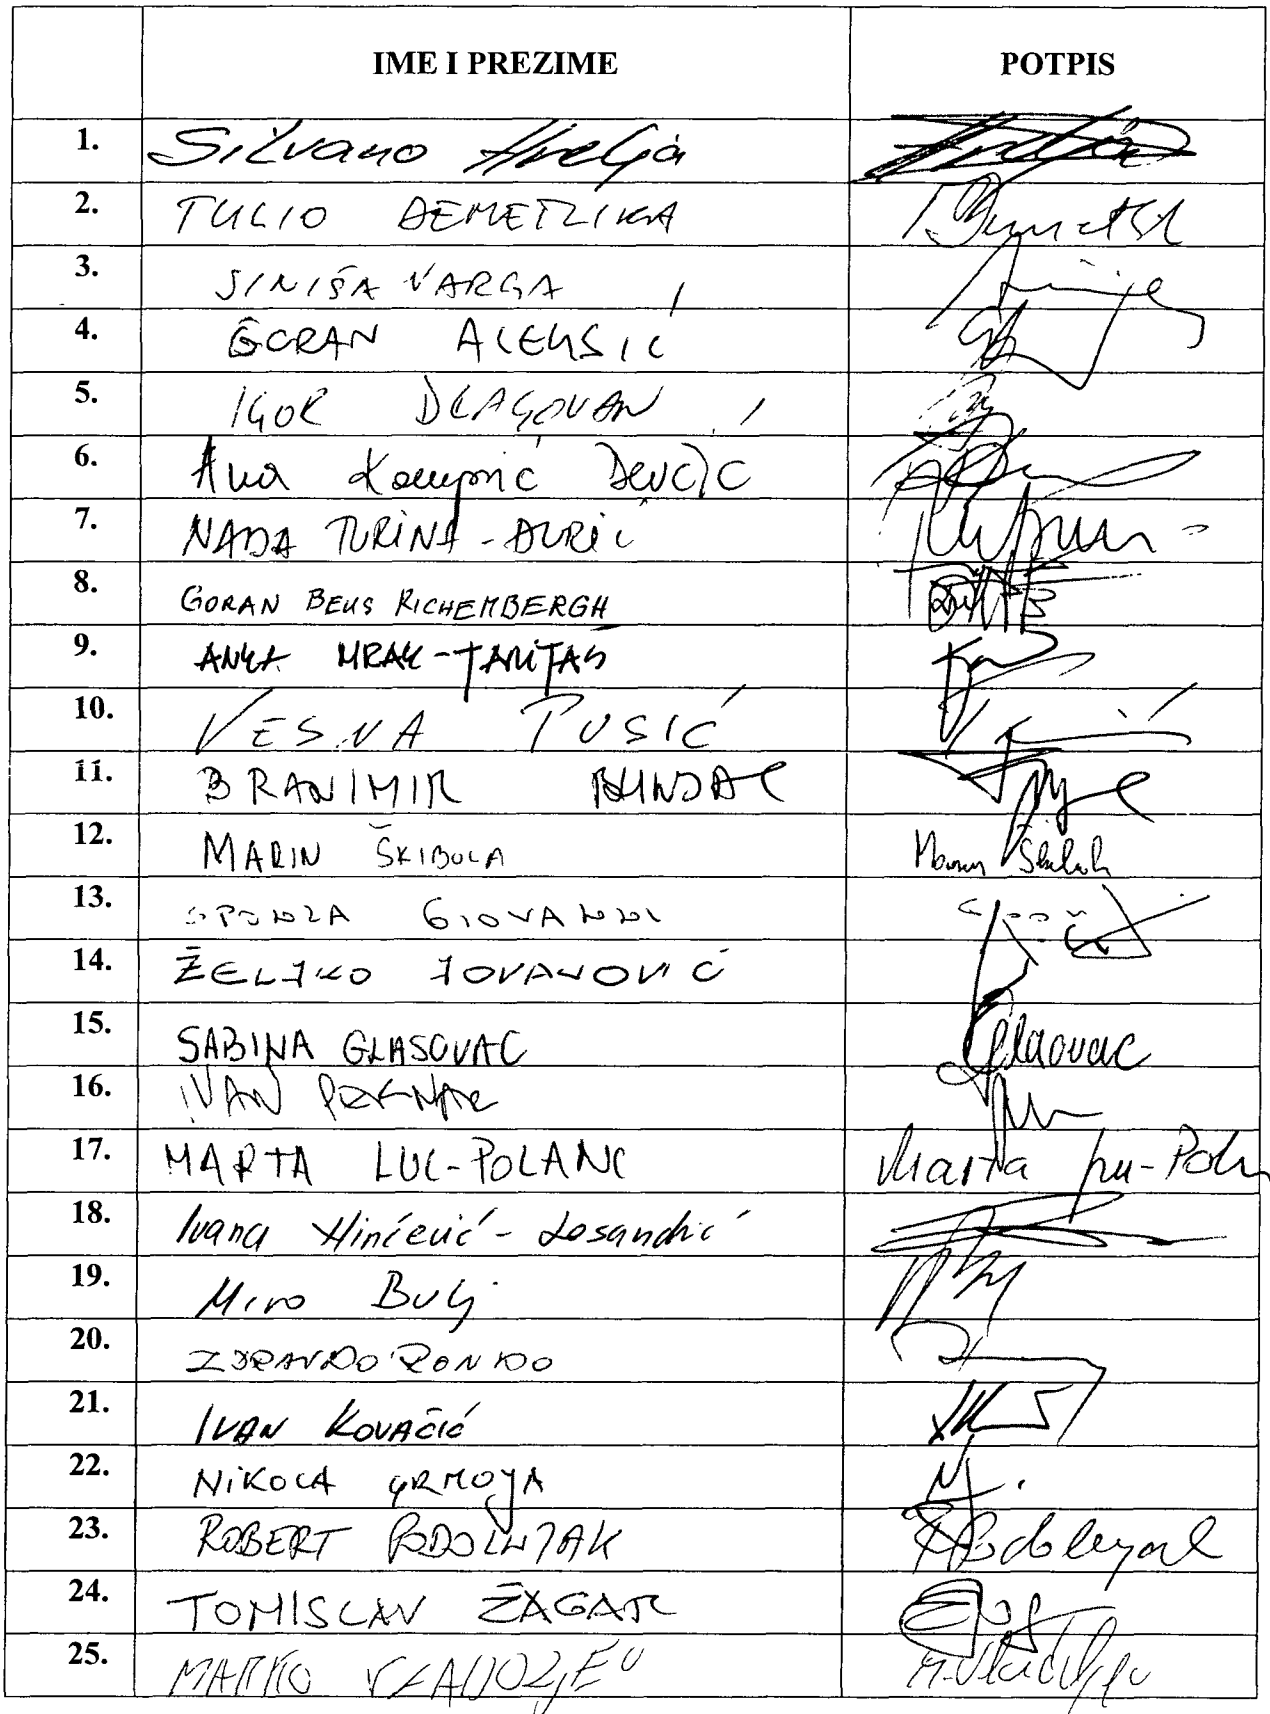 IME I PREZIME POTPIS
1. Silvano Hrelja
2. TULIO DEMETLIKA
3. SINIŠA VARGA
4. GORAN ALEKSIĆ
5. IGOR DRAGOVAN
6. Ana Komparić Devčić
7. NADA TURINA-ĐURIĆ
8. GORAN BEUS RICHEMBERGH
9. ANKA MRAK-TARITAŠ
10. VESNA PUSIĆ
11. BRANIMIR BUNJAC
12. MARIN ŠKIBOLA Marin Škibola
13. SPONZA GIOVANNI
14. ŽELJKO JOVANOVIĆ
15. SABINA GLASOVAC Glasovac
16. IVAN PERNAR
17. MARTA LUC-POLANC Marta
18. Ivana Ninčević-Lesandrić
19. Miro Bulj
20. ZDRAVKO RONKO
21. IVAN KOVAČIĆ
22. NIKOLA GRMOJA
23. ROBERT PODOLNJAK
24. TOMISLAV ŽAGAR
25. MARKO VLADOLJEV